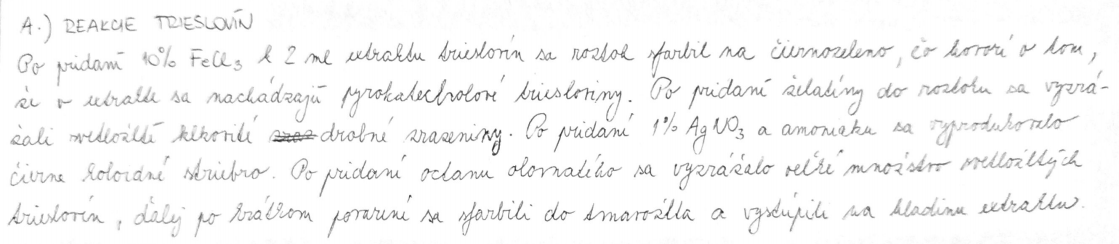 A.) REAKCIE TRIESLOVÍN
Po pridaní 10% FeCl₃ k 2 ml extraktu trieslovín sa roztok sfarbil na čiernozeleno, čo hovorí o tom,
že v extrakte sa nachádzajú pyrokatecholové triesloviny. Po pridaní želatíny do roztoku sa vyzrá-
žali svetložlté drobné zrazeniny. Po pridaní 1% AgNO₃ a amoniaku sa vyprodukovalo
čierne koloidné striebro. Po pridaní octanu olovnatého sa vyzrážalo veľké množstvo svetložltých
trieslovín, ďalej po krátkom povarení sa sfarbili do tmavožlta a vystúpili na hladinu extraktu.